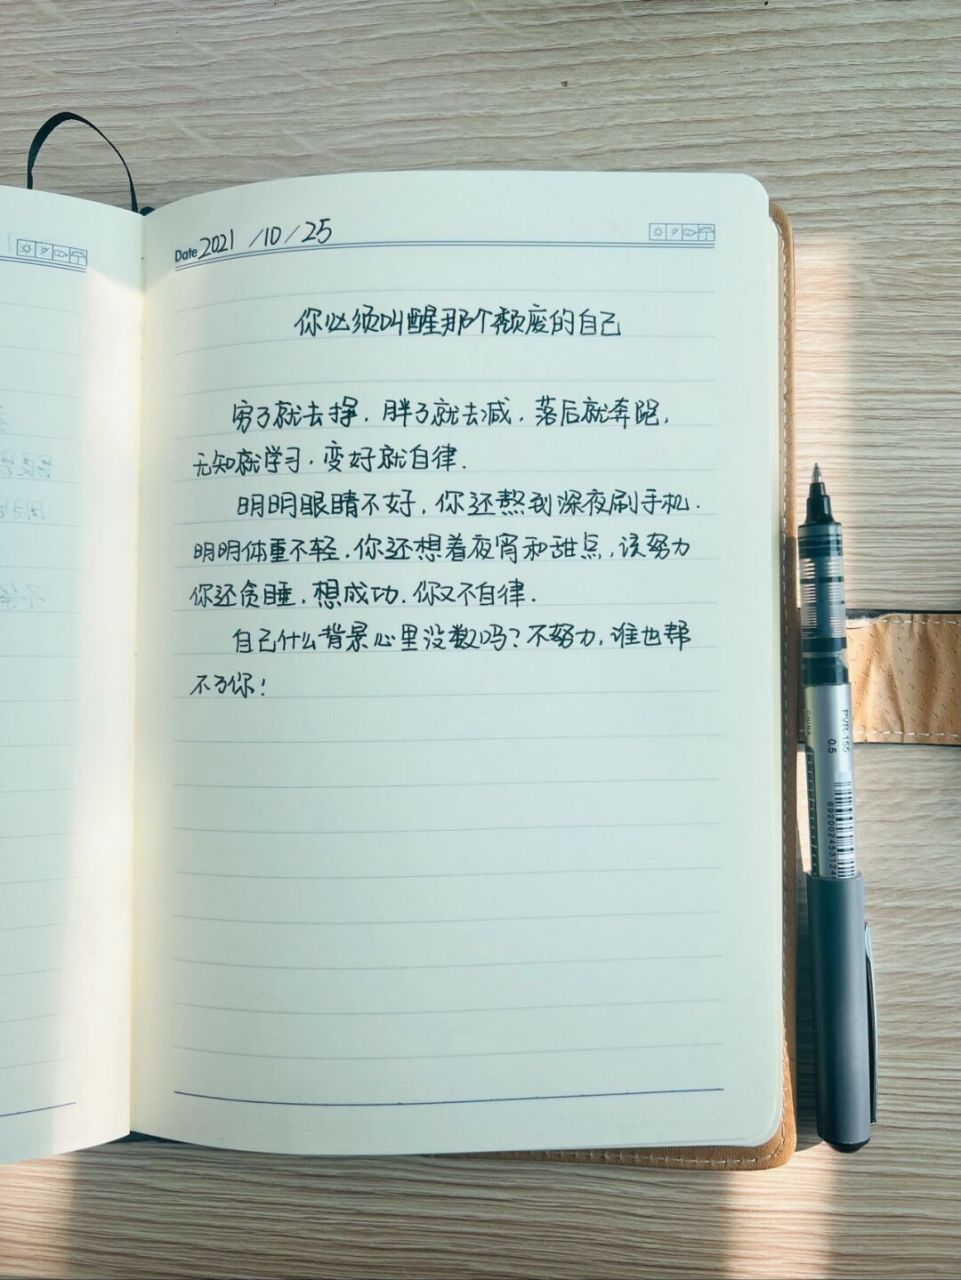 Date 2021 / 10 / 25
你必须叫醒那个颓废的自己
穷了就去挣，胖了就去减，落后就奔跑，
无知就学习，变好就自律．
明明眼睛不好，你还熬到深夜刷手机．
明明体重不轻，你还想着夜宵和甜点，该努力
你还贪睡，想成功，你又不自律．
自己什么背景心里没数吗？不努力，谁也帮
不了你！
PVR-155
0.5
CHINA